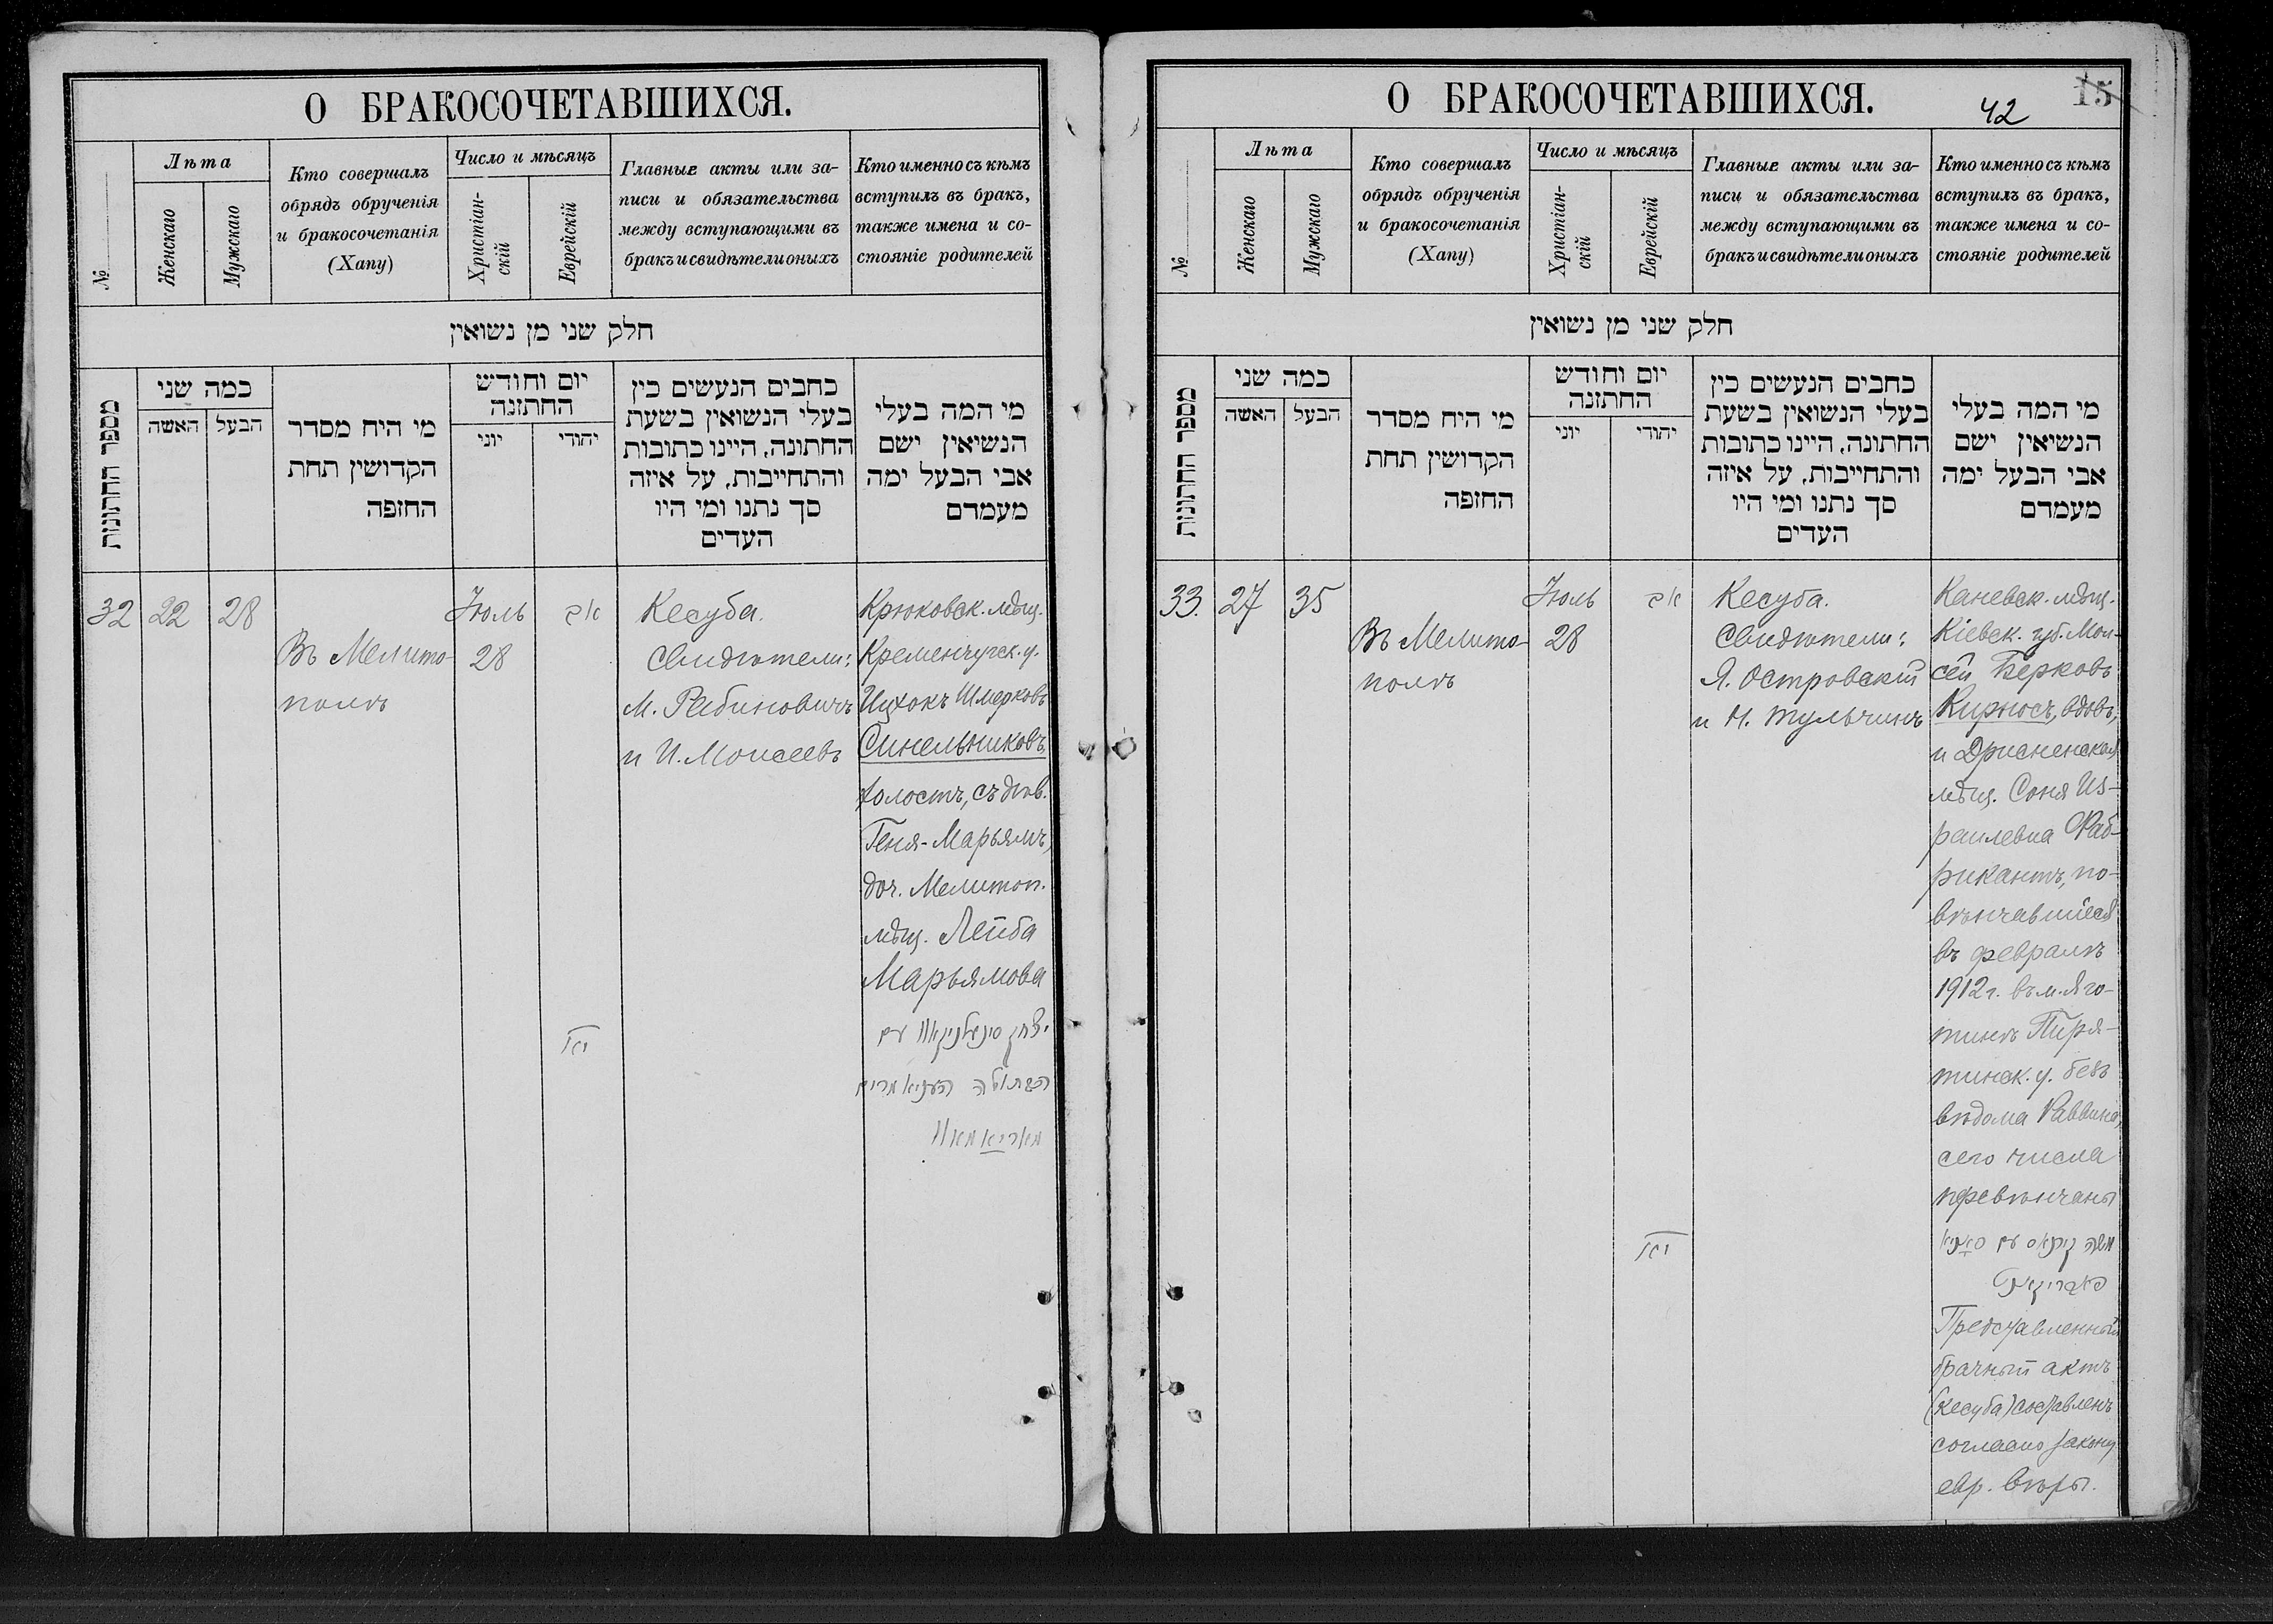 О БРАКОСОЧЕТАВШИХСЯ.
№
Лѣта
Женскаго
Мужскаго
Кто совершалъ
обрядъ обрученія
и бракосочетанія
(Хапу)
Число и мѣсяцъ
Христіан-
скій
Еврейскій
Главные акты или за-
писи и обязательства
между вступающими въ
бракъ и свидѣтели оныхъ
Кто именно съ кѣмъ
вступилъ въ бракъ,
также имена и со-
стояніе родителей
חלק שני מן נשואין
מספר החתונות
כמה שני
האשה
הבעל
מי היח מסדר
הקדושין תחת
החזפה
יום וחודש
החתזנה
יוני
יהודי
כחבים הנעשים כין
בעלי הנשואין בשעת
החתונה, היינו כתובות
והתחייבות, על איזה
סך נתנו ומי היו
העדים
מי המה בעלי
הנשיאין ישם
אבי הבעל ימה
מעמדם
32
22
28
Въ Мелито-
полѣ
Іюль
28
Кесуба.
Свидѣтели:
М. Рабиновичъ
и И. Моисеевъ
Крюковск. мѣщ.
Кременчугск. у.
Ицхокъ Шмерковъ
Синельниковъ,
холостъ, съ дѣв.
Геня-Марьямъ,
доч. Мелитоп.
мѣщ. Лейба
Марьямова
יצחק סינעלניקאוו עם
הבתולה העניא מרים
מאריאמאוו
О БРАКОСОЧЕТАВШИХСЯ.
42
15
№
Лѣта
Женскаго
Мужскаго
Кто совершалъ
обрядъ обрученія
и бракосочетанія
(Хапу)
Число и мѣсяцъ
Христіан-
скій
Еврейскій
Главные акты или за-
писи и обязательства
между вступающими въ
бракъ и свидѣтели оныхъ
Кто именно съ кѣмъ
вступилъ въ бракъ,
также имена и со-
стояніе родителей
חלק שני מן נשואין
מספר החתונות
כמה שני
האשה
הבעל
מי היח מסדר
הקדושין תחת
החזפה
יום וחודש
החתזנה
יוני
יהודי
כחבים הנעשים כין
בעלי הנשואין בשעת
החתונה, היינו כתובות
והתחייבות, על איזה
סך נתנו ומי היו
העדים
מי המה בעלי
הנשיאין ישם
אבי הבעל ימה
מעמדם
33.
27
35
Въ Мелито-
полѣ
Іюль
28
Кесуба.
Свидѣтели:
Я. Островскій
и Н. Тульчинъ
Каневск. мѣщ.
Кіевск. губ. Мои-
сей Берковъ
Кирносъ, вдовъ,
и Дрисненская
мѣщ. Соня Из-
раилевна Фаб-
рикантъ, по-
вѣнчавшіеся
въ февралѣ
1912 г. въ м. Яго-
тинѣ Пиря-
тинск. у. безъ
вѣдома Раввина,
сего числа
перевѣнчаны
משה קירנאס עם סאניא
פאבריקאנט
Представленный
брачный актъ
(кесуба) составленъ
согласно закону
евр. вѣры.